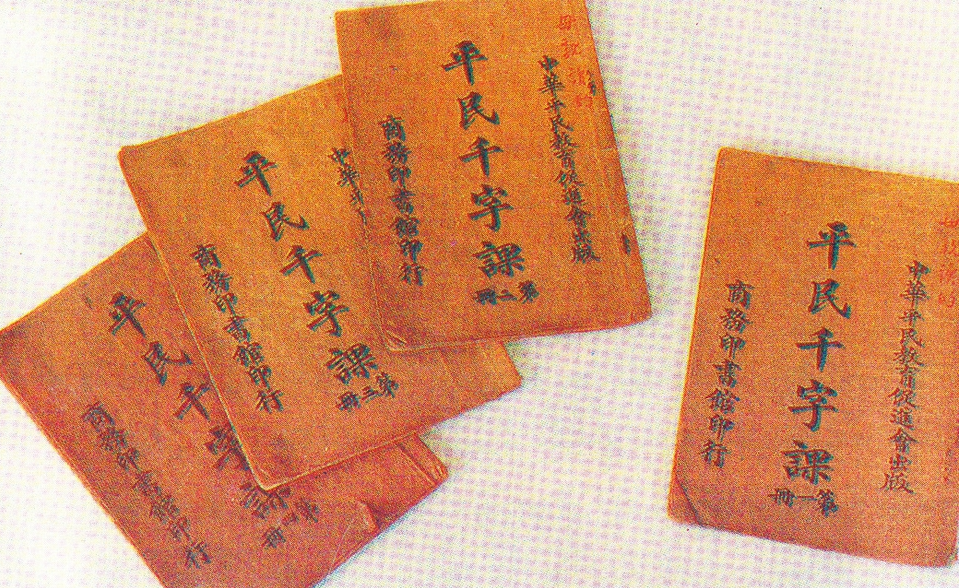 中華平民教育促進會出版
平民千字課
第一冊
商務印書館印行
中華平民教育促進會出版
平民千字課
第二冊
商務印書館印行
中華平
平民千字課
第三冊
商務印書館印行
平民千字課
第四冊
商務印書館印行